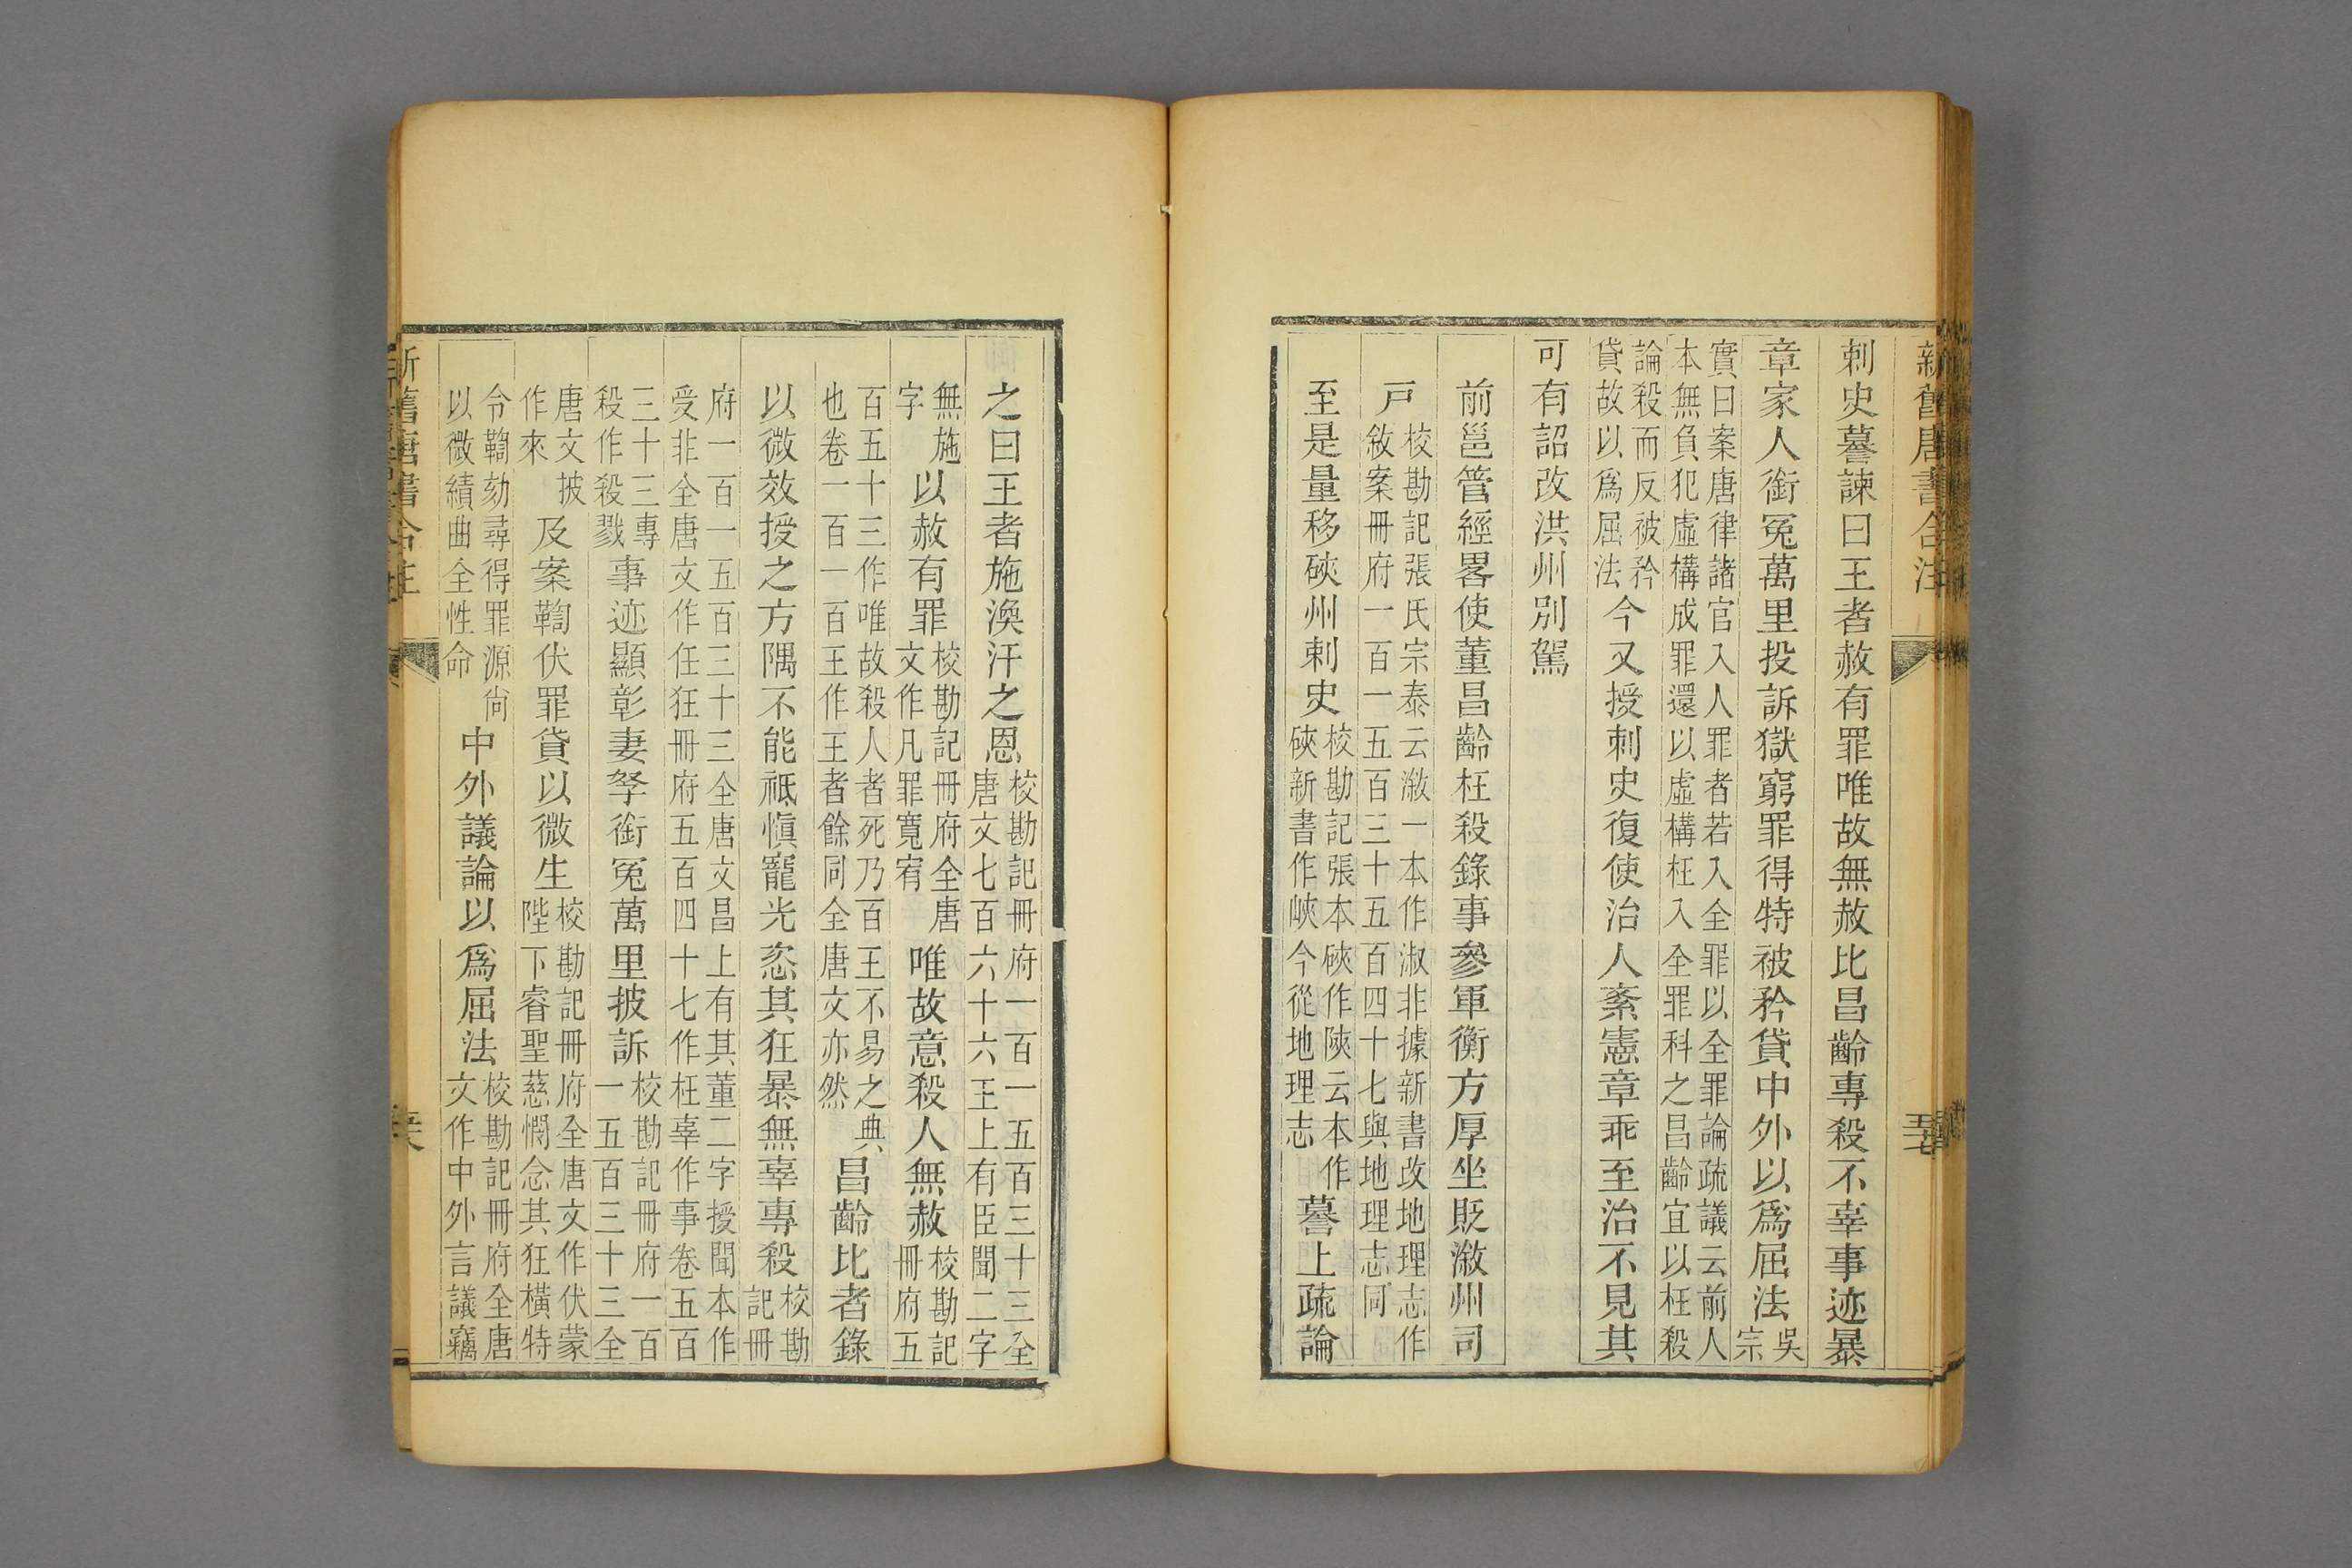 新舊唐書合注
刺史謩諫曰王者赦有罪唯故無赦比昌齡專殺不辜事迹暴
章家人銜冤萬里投訴獄窮罪得特被矜貸中外以爲屈法吳宗
實曰案唐律諸官入人罪者若入全罪以全罪論疏議云前人
本無負犯虛構成罪還以虛構枉入全罪科之昌齡宜以枉殺
論殺而反被矜
貸故以爲屈法今又授刺史復使治人紊憲章乖至治不見其
可有詔改洪州別駕
前邕管經畧使董昌齡枉殺錄事參軍衡方厚坐貶漵州司
戸校勘記張氏宗泰云漵一本作淑非據新書改地理志作
敘案冊府一百一五百三十五百四十七與地理志同
至是量移硤州刺史校勘記張本硤作陝云本作
硤新書作峽今從地理志謩上疏論
之曰王者施渙汗之恩校勘記冊府一百一五百三十三全
唐文七百六十六王上有臣聞二字
無施
字以赦有罪校勘記冊府全唐
文作凡罪寬宥唯故意殺人無赦校勘記
冊府五
百五十三作唯故殺人者死乃百王不易之典
也卷一百一百王作王者餘同全唐文亦然昌齡比者錄
以微效授之方隅不能祗愼寵光恣其狂暴無辜專殺校勘
記冊
府一百一五百三十三全唐文昌上有其董二字授聞本作
受非全唐文作任狂冊府五百四十七作枉辜作事卷五百
三十三專
殺作殺戮事迹顯彰妻孥銜冤萬里披訴校勘記冊府一百
一五百三十三全
唐文披
作來及案鞫伏罪貸以微生校勘記冊府全唐文作伏蒙
陛下睿聖慈憫念其狂橫特
令鞫劾尋得罪源尙
以微績曲全性命中外議論以爲屈法校勘記冊府全唐
文作中外言議竊